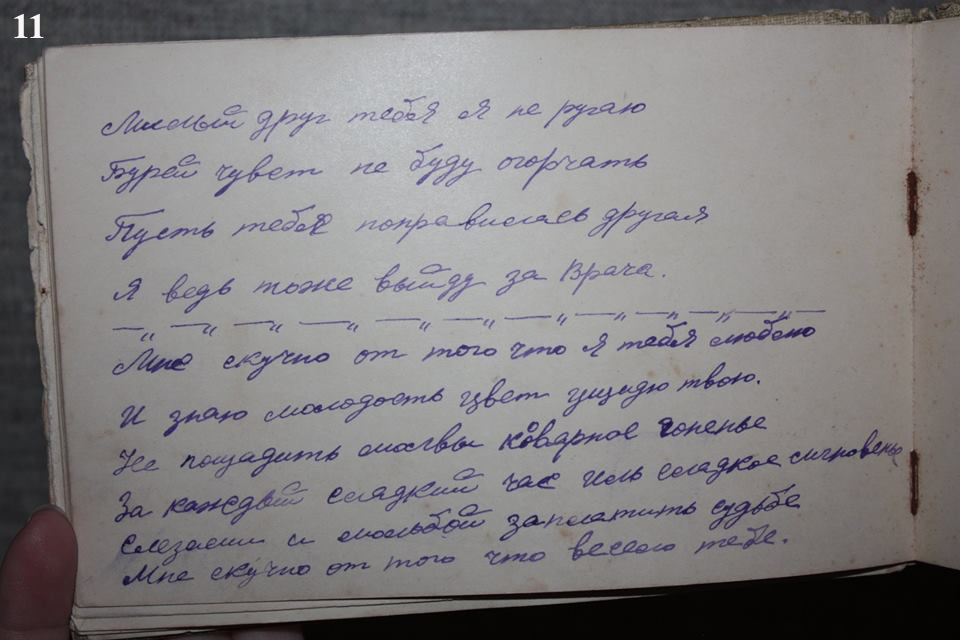 11
Милый друг тебя я не ругаю
Бурей чувст не буду огорчать
Пусть тебе понравилась другая
Я ведь тоже выйду за Врача.
—„—„—„—„—„—„—„—„—„—„—
Мне скучно от того что я тебя люблю
И знаю молодость цвет ущидю твою.
Не пощадить молвы коварное гоненье
За каждый сладкий час иль сладкое мгновенье
Слезами и мольбой заплатить судьбе
Мне скучно от того что весело тебе.